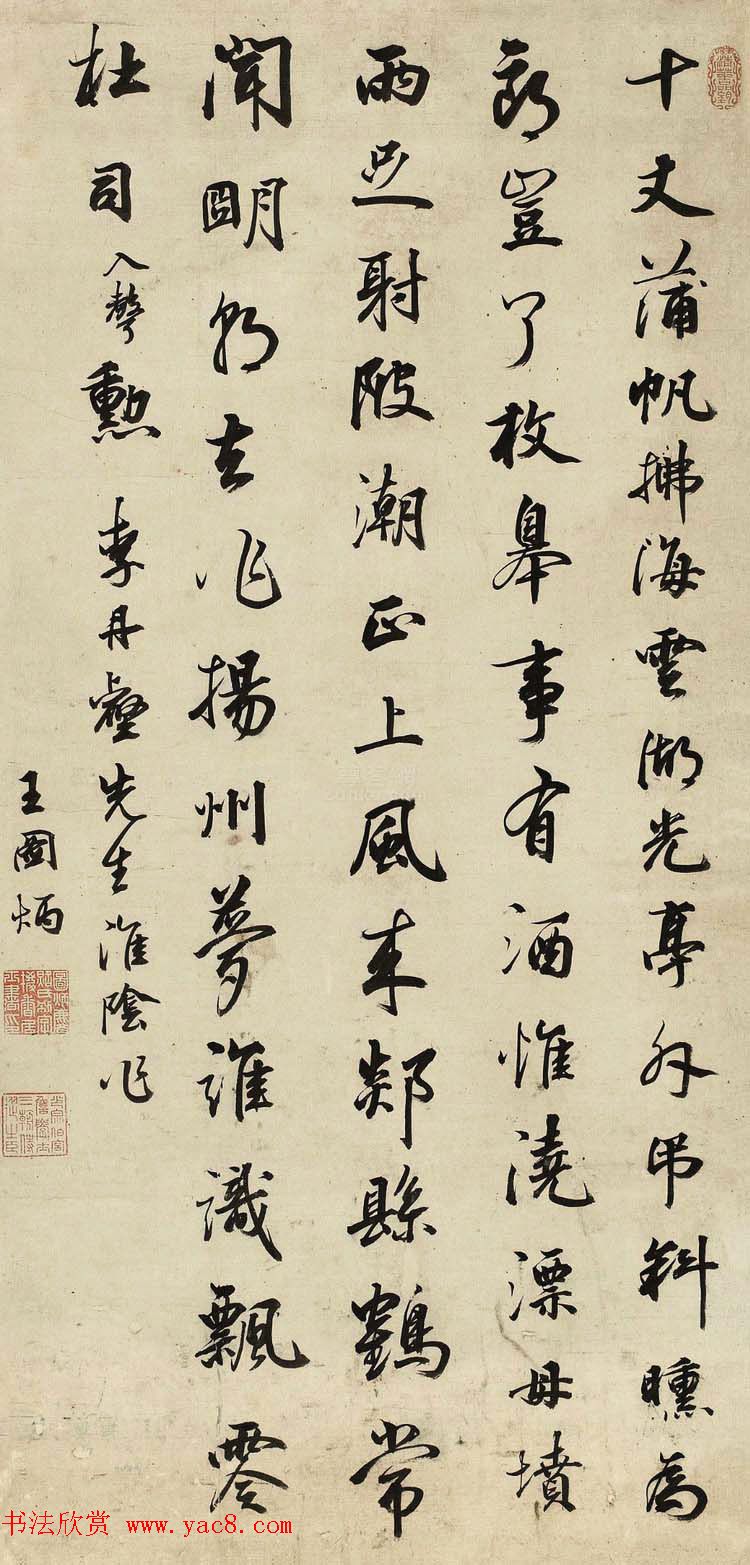 十丈蒲帆拂海雲湖光亭外弔斜曛為
郎豈了枚皋事有酒惟澆漂母墳
雨足射陂潮正上風來郯縣鸛常
聞朙朝去作揚州夢誰識飄零
杜司入聲勳 李丹壑先生淮陰作
王圖炳
书法欣赏 www.yac8.com